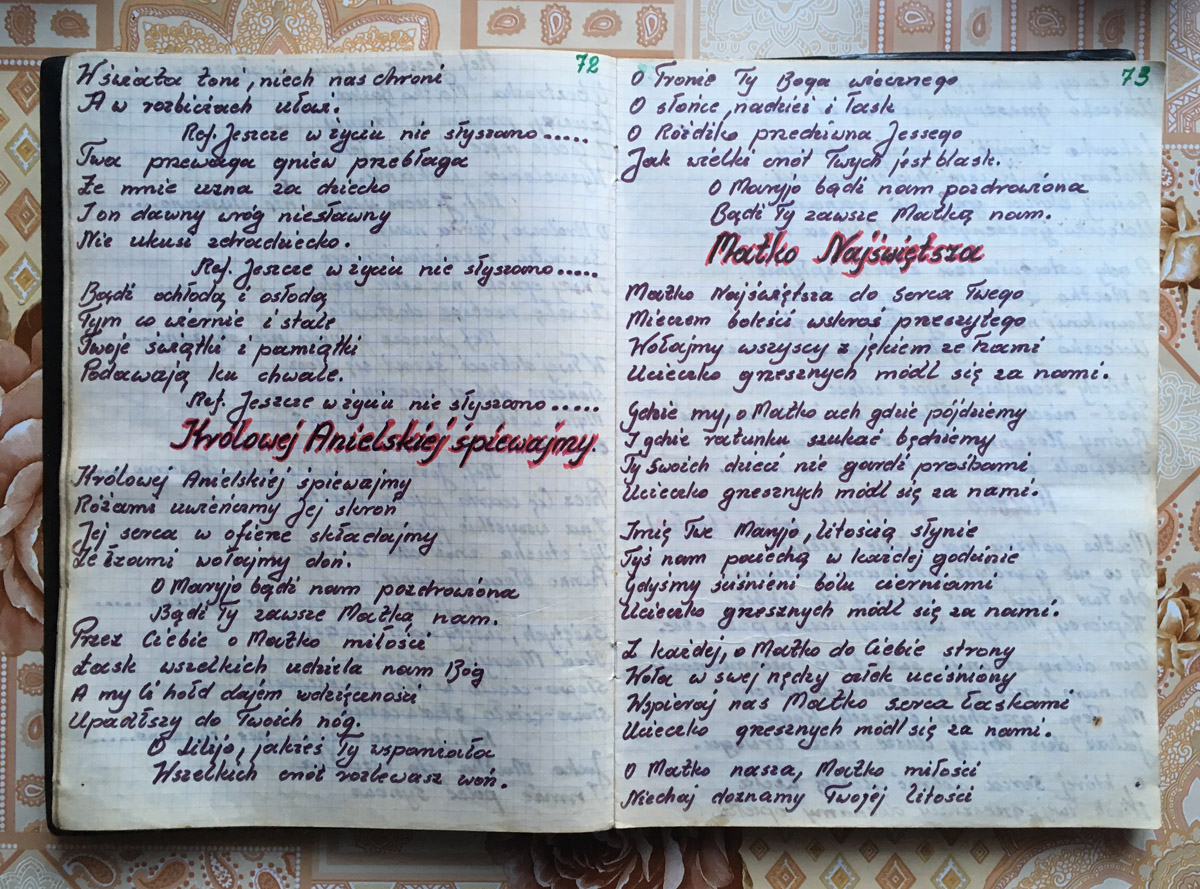 72
W świata toni, niech nas chroni
A w rozbiciach uław.
Ref. Jeszcze w życiu nie słyszano.....
Twa przewaga gniew przebłaga
Że mnie uzna za dziecko
I on dawny wróg niesławny
Nie ukusi zdradziecko.
Ref. Jeszcze w życiu nie słyszano.....
Bądź ochłodą i osłodą
Tym co wiernie i stale
Twoje świątki i pamiątki
Podawają ku chwale.
Ref. Jeszcze w życiu nie słyszano.....
Królowej Anielskiej śpiewajmy.
Królowej Anielskiej śpiewajmy
Różami uwieńczmy Jej skroń
Jej serca w ofierze składajmy
Ze łzami wołajmy doń.
O Maryjo bądź nam pozdrowiona
Bądź Ty zawsze Matką nam.
Przez Ciebie o Matko miłości
Łask wszelkich udziela nam Bóg
A my Ci hołd dajem wdzięczności
Upadłszy do Twoich nóg.
O Lilijo, jakieś Ty wspaniała
Wszelkich cnót rozlewasz woń.
73
O Tronie Ty Boga wiecznego
O słońce, nadziei i łask
O Różdżko przedziwna Jessego
Jak wielki cnót Twych jest blask.
O Maryjo bądź nam pozdrowiona
Bądź Ty zawsze Matką nam.
Matko Najświętsza
Matko Najświętsza do serca Twego
Mieczem boleści wskroś przeszytego
Wołajmy wszyscy z jękiem ze łzami
Ucieczko grzesznych módl się za nami.
Gdzie my, o Matko ach gdzie pójdziemy
I gdzie ratunku szukać będziemy
Ty swoich dzieci nie gardź prośbami
Ucieczko grzesznych módl się za nami.
Imię Twe Maryjo, litością słynie
Tyś nam pociechą w każdej godzinie
Gdyśmy ściśnieni bólu cierniami
Ucieczko grzesznych módl się za nami.
Z każdej, o Matko do Ciebie strony
Woła w swej nędzy człek uciśniony
Wspieraj nas Matko serca łaskami
Ucieczko grzesznych módl się za nami.
O Matko nasza, Matko miłości
Niechaj doznamy Twojej litości